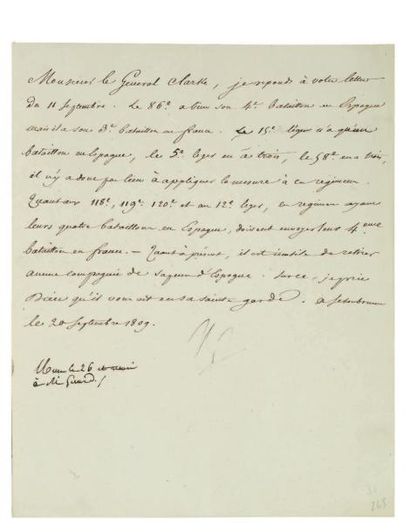 Monsieur le Général Clarke, je reponds à votre lettre
du 11 septembre. Le 86e a bien son 4e bataillon en Espagne
mais il a son 3e bataillon en france. Le 15e léger n'a qu'un
bataillon en Espagne, le 5e léger en a trois, le 58e en a trois,
il n'y a donc pas lieu à appliquer la mesure à ces régimens.
Quant aux 118e, 119e 120e et au 12e léger, ces régimens ayant
leurs quatre bataillons en Espagne, doivent envoyer leur 4eme
bataillon en france. — Quant à présent, il est inutile de retirer
aucune compagnie de sapeurs d'Espagne. Sur ce, je prie
Dieu qu'il vous ait en sa sainte garde. à Schonbrunn
le 20 septembre 1809.
le 26
à M.
265